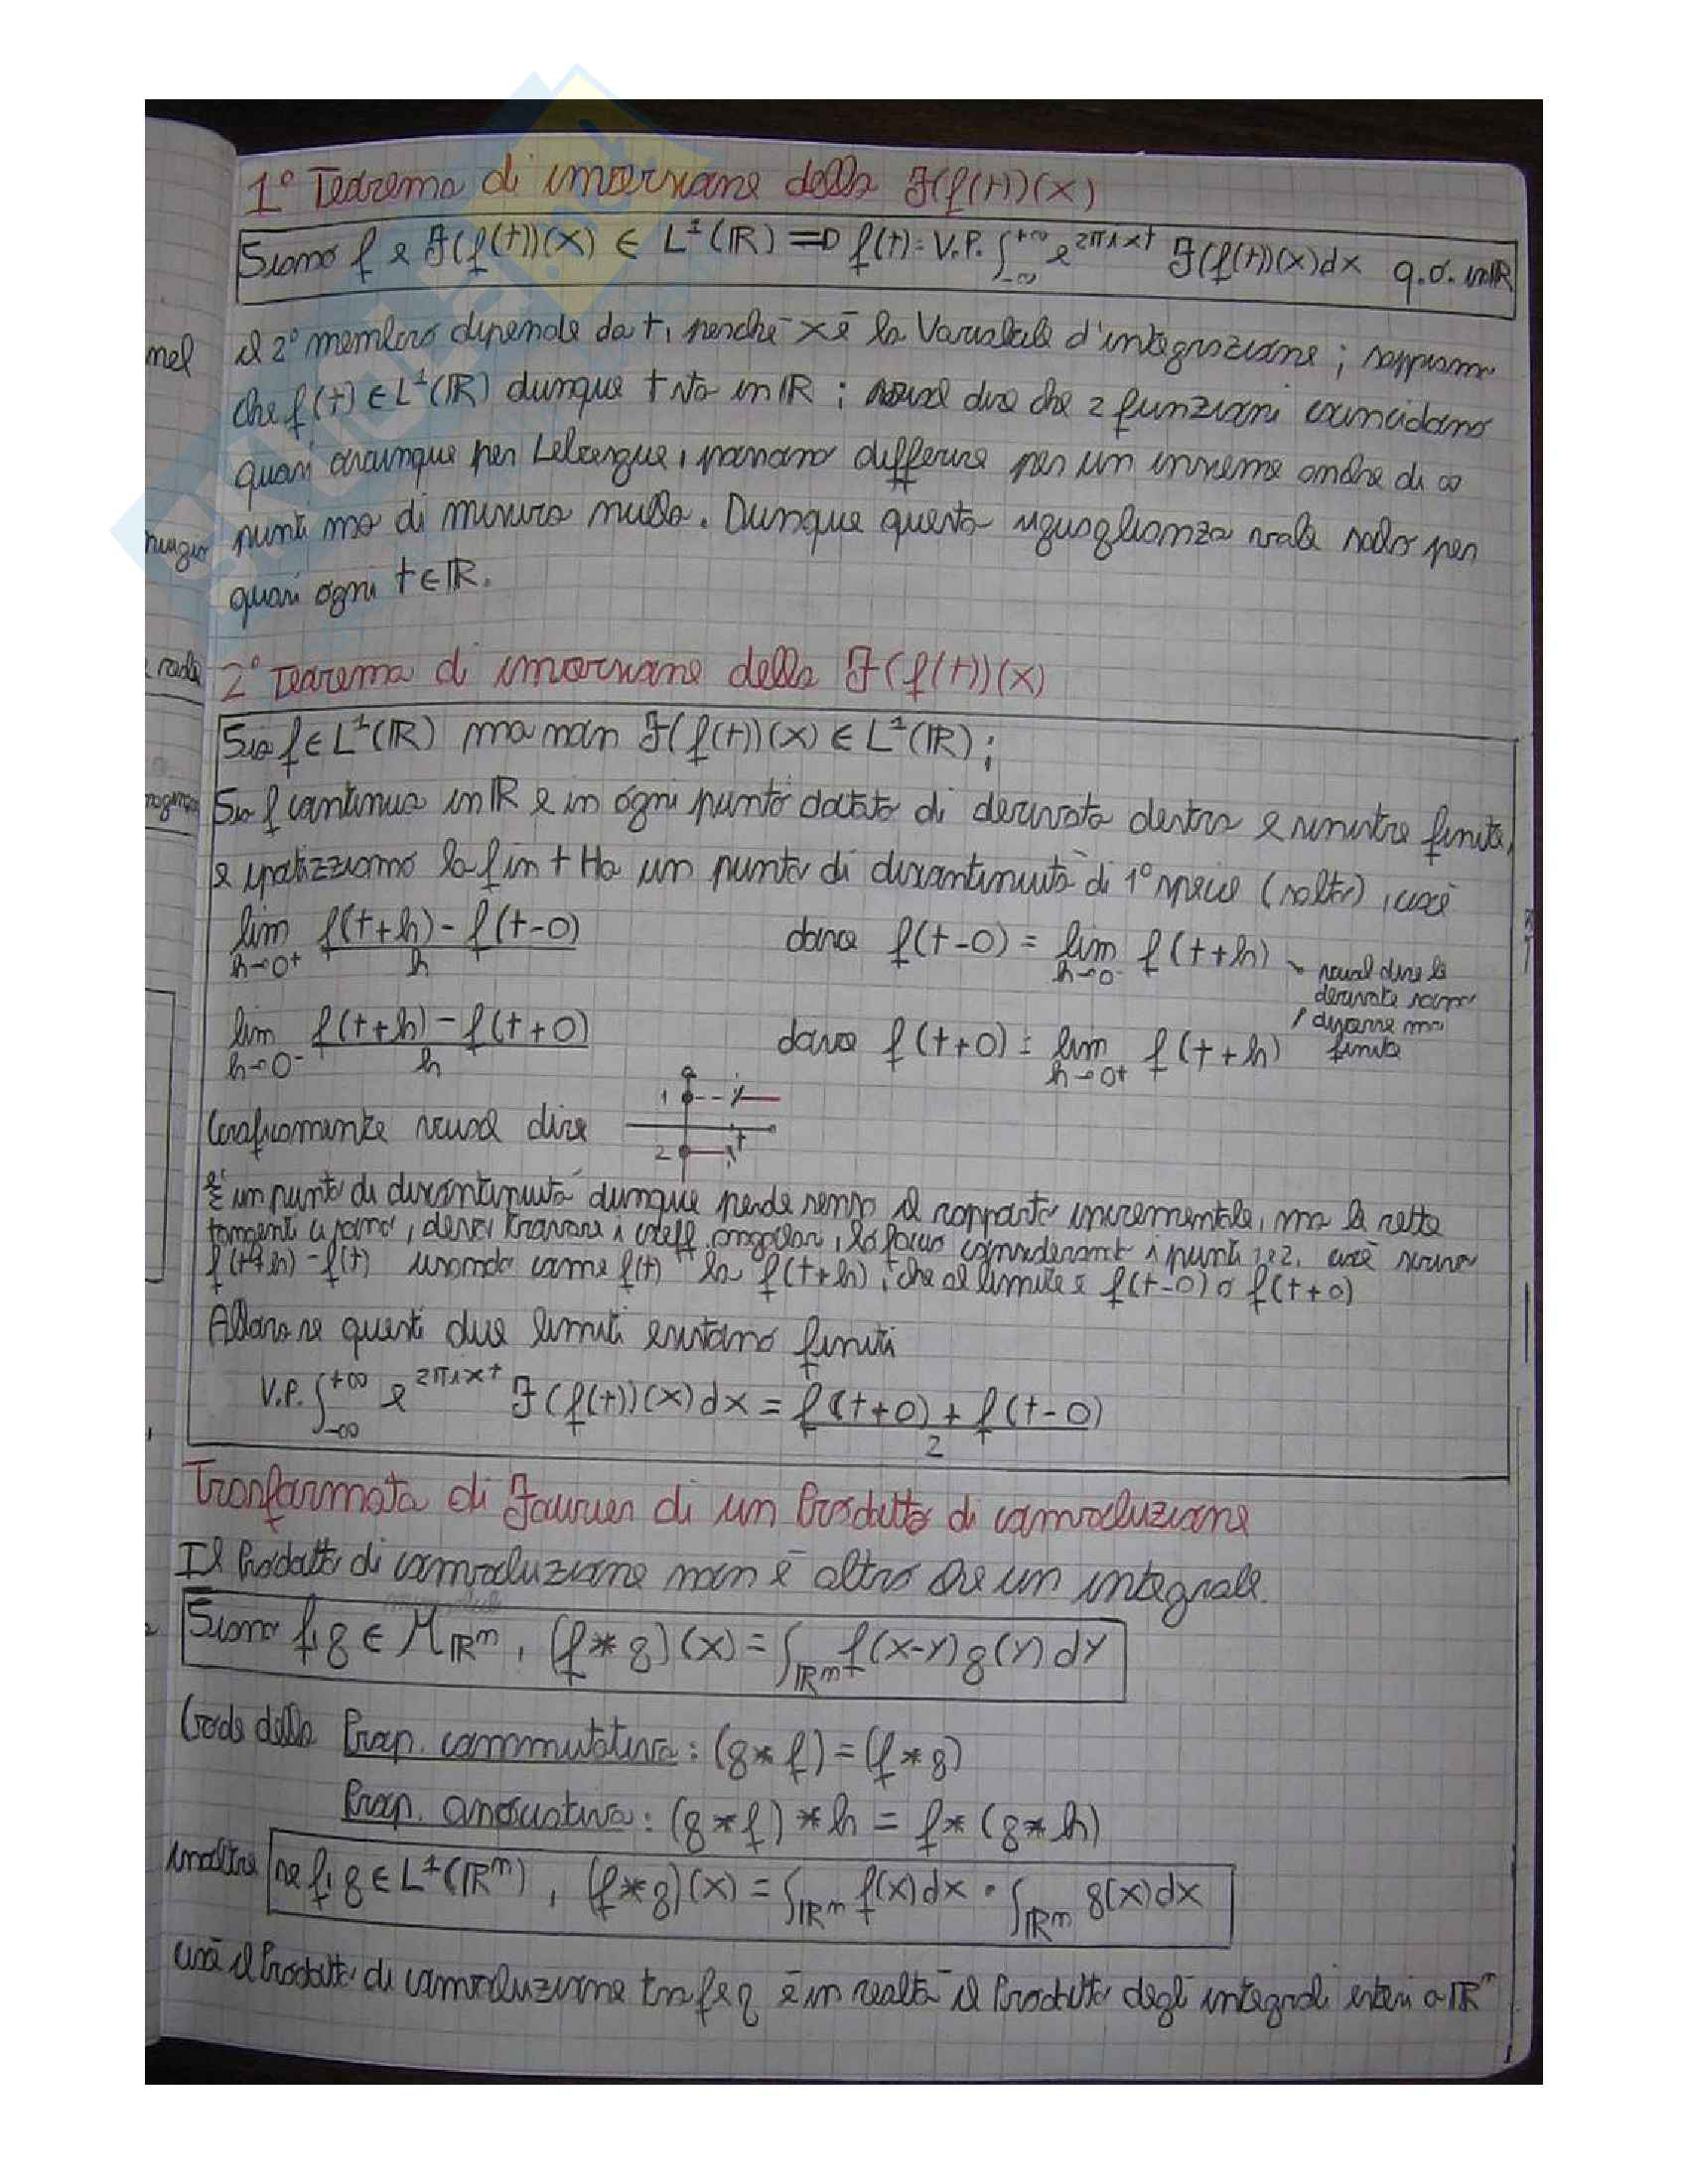 1° Teorema di inversione della F(f(t))(x)
Siano f e F(f(t))(x) ∈ L¹(ℝ) ⇒ f(t) = V.P. ∫_{-∞}^{+∞} e^{2πixt} F(f(t))(x)dx q.o. in ℝ
nel
il 2° membro dipende da t, perchè x è la variabile d'integrazione; sappiamo
che f(t) ∈ L¹(ℝ) dunque t sta in ℝ; vuol dire che 2 funzioni coincidono
quasi ovunque per Lebesgue, possono differire per un insieme anche di ∞
punti ma di misura nulla. Dunque questa uguaglianza vale solo per
quasi ogni t ∈ ℝ.
2° Teorema di inversione della F(f(t))(x)
Sia f ∈ L¹(ℝ) ma non F(f(t))(x) ∈ L¹(ℝ);
Sia f continua in ℝ e in ogni punto dotata di derivata destra e sinistra finite,
e ipotizziamo la f in t Ha un punto di discontinuità di 1° specie (salto), cioè
lim_{h→0+} (f(t+h) - f(t-0))/h dove f(t-0) = lim_{h→0-} f(t+h)
vuol dire le
derivate sono
diverse ma
finite
lim_{h→0-} (f(t+h) - f(t+0))/h dove f(t+0) = lim_{h→0+} f(t+h)
Graficamente vuol dire
1
t
2
È un punto di discontinuità dunque perde senso il rapporto incrementale, ma le rette
tangenti ci sono, devo trovare i coeff. angolari, lo faccio considerando i punti 1 e 2, cioè scrivo
f(t+h) - f(t) usando come f(t) la f(t+h), che al limite è f(t-0) o f(t+0)
Allora se questi due limiti esistono finiti
V.P. ∫_{-∞}^{+∞} e^{2πixt} F(f(t))(x)dx = (f(t+0) + f(t-0))/2
Trasformata di Fourier di un Prodotto di convoluzione
Il Prodotto di convoluzione non è altro che un integrale.
Siano f,g ∈ M_{ℝⁿ}, (f*g)(x) = ∫_{ℝⁿ} f(x-y)g(y)dy
Gode della Prop. commutativa: (g*f) = (f*g)
Prop. associativa: (g*f)*h = f*(g*h)
inoltre se f,g ∈ L¹(ℝⁿ), (f*g)(x) = ∫_{ℝⁿ} f(x)dx · ∫_{ℝⁿ} g(x)dx
cioè il Prodotto di convoluzione tra f e g è in realtà il Prodotto degli integrali estesi a ℝⁿ